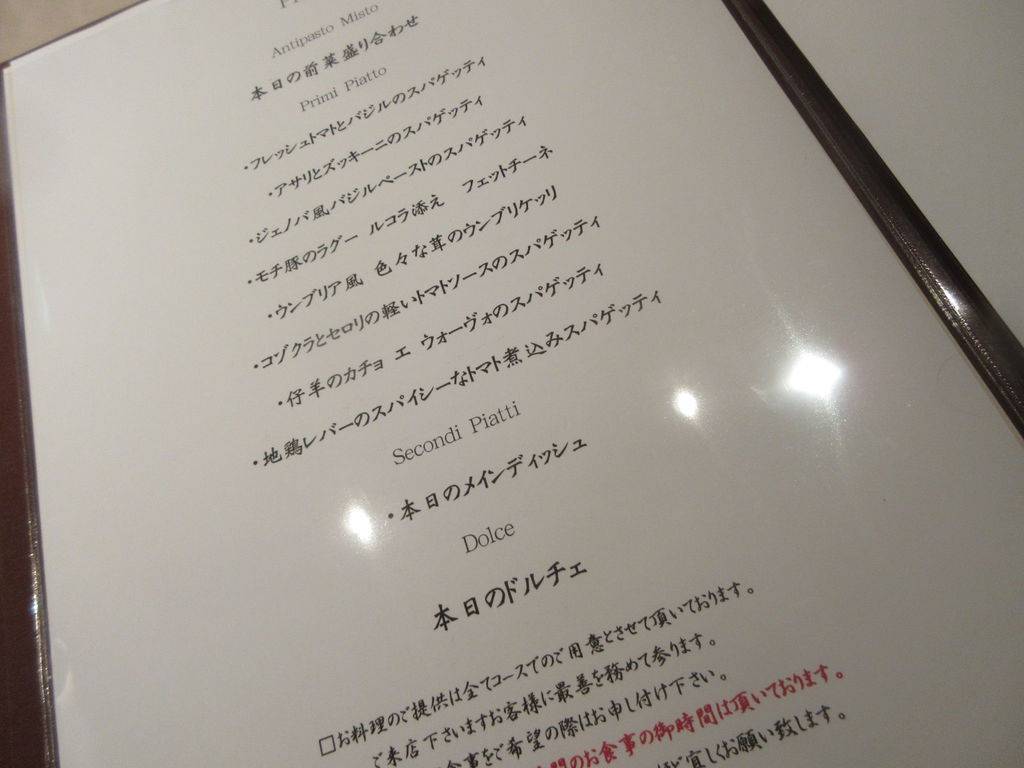 Antipasto Misto
本日の前菜盛り合わせ
Primi Piatto
・フレッシュトマトとバジルのスパゲッティ
・アサリとズッキーニのスパゲッティ
・ジェノバ風バジルペーストのスパゲッティ
・モチ豚のラグー ルコラ添え フェットチーネ
・ウンブリア風 色々な茸のウンブリケッリ
・コヅクラとセロリの軽いトマトソースのスパゲッティ
・仔羊のカチョ エ ウォーヴォのスパゲッティ
・地鶏レバーのスパイシーなトマト煮込みスパゲッティ
Secondi Piatti
・本日のメインディッシュ
Dolce
本日のドルチェ
□お料理のご提供は全てコースでのご用意とさせて頂いております。
ご来店下さいますお客様に最善を務めて参ります。
食事をご希望の際はお申し付け下さい。
間のお食事の御時間は頂いております。
宜しくお願い致します。